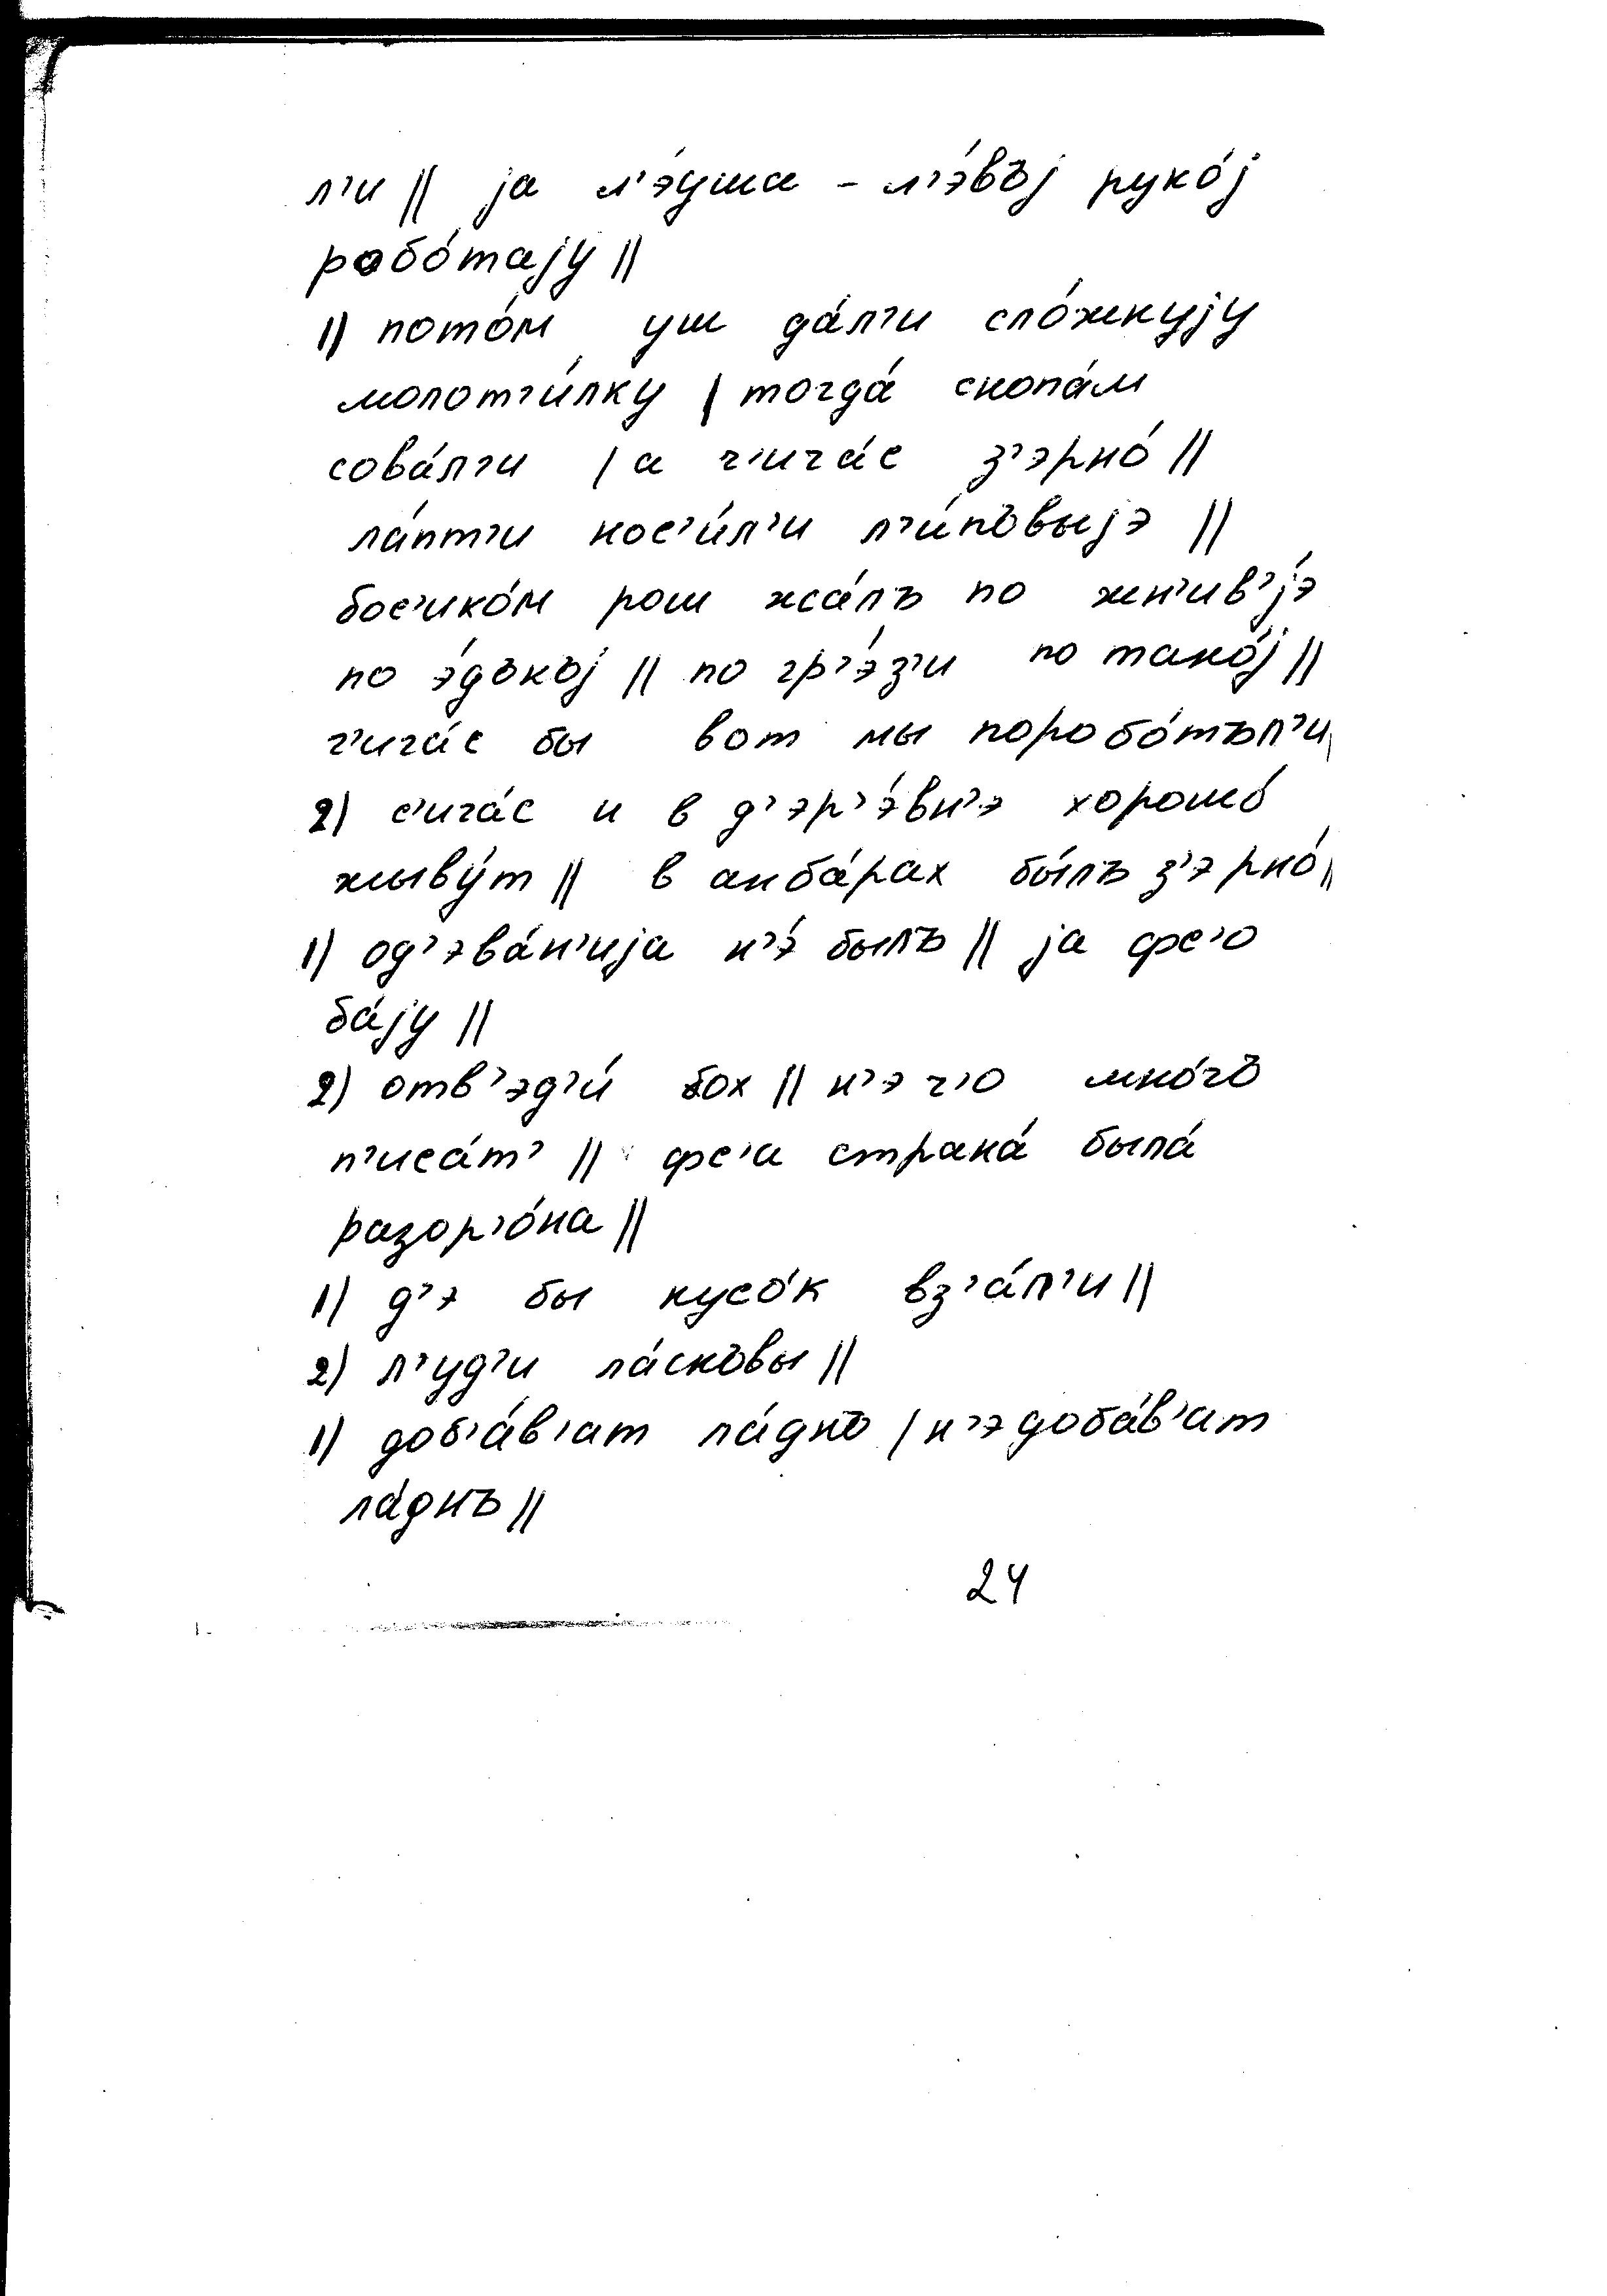 л'и || jа л'э́уша – л'э́въj руко́j
робо́таjу ||
1) пото́м уш да́л'и сло́жнуjу
молот'и́лку | тогда́ снопа́м
сова́л'и | а ч'ича́с з'эрно́ ||
ла́пт'и нос'и́л'и л'и́повыjэ ||
бос'ико́м рош жа́лъ по жн'ив'jэ́
по э́дъкъj || по гр'э́з'и по тако́j ||
ч'ича́с бы вот мы поробо́тъл'и ||
2) с'ича́с и в д'эр'э́вн'э хорошо́
жыву́т || в анба́рах бы́лъ з'эрно́ ||
1) од'эва́н'иjа н'э́ былъ || jа фс'о
ба́jу ||
2) отв'эд'и́ бох || н'э ч'о мно́гъ
п'иса́т' || фс'а страна́ была́
разор'о́на ||
1) д'э бы кусо́к вз'а́л'и ||
2) л'уд'и ла́сковы ||
1) доб'а́в'ат ла́дно | н'э доба́в'ат
ла́днъ ||
24